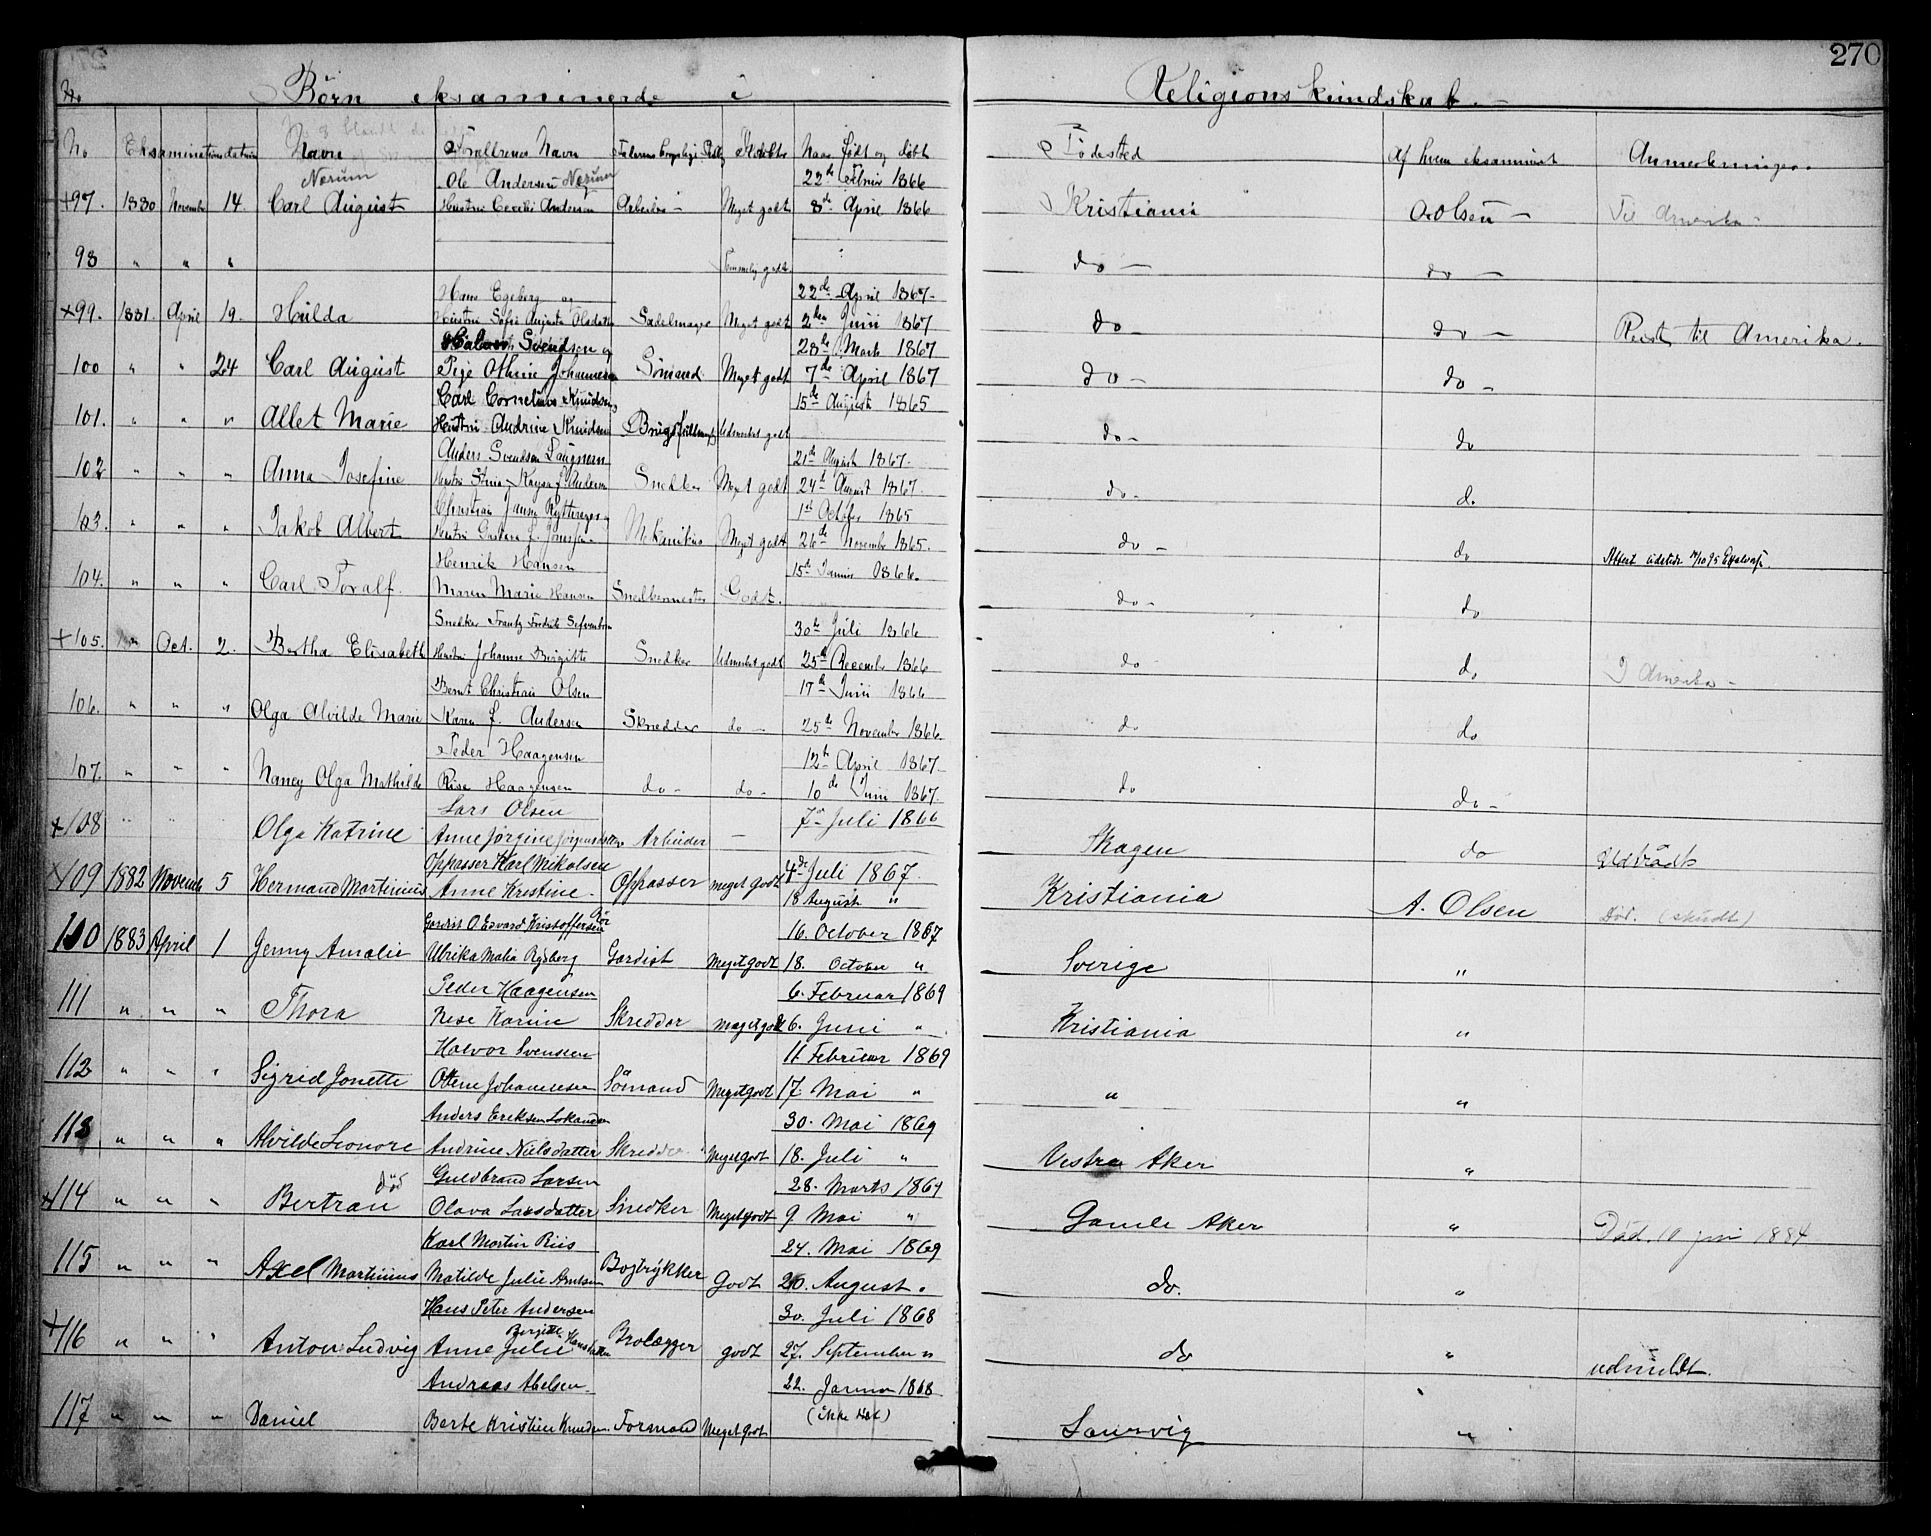 270
No. Børn eksaminerede i Religionskundskab. —
No Eksaminationsdatum Navn Forældrenes Navn Faderens Stilling Karakter Naar født og døbt Fødested Af hvem eksamineret Anmerkninger.
Nerum Ole Andersen Nerum 22de 1866
+97. 1880 Novembr 14. Carl August Hustru Cecilie Andersen Arbeider — Meget godt 8de April 1866 Kristiania O. Olsen — Til Amerika —
98 " " " Temmelig godt do — do —
Hans Egeberg og 22de April 1867 —
+99. 1881. April 19. Hulda Hustru Sofie Augusta Olsdatter Sadelmager Meget godt 2den Juni 1867 do — do — Reist til Amerika.
Halvor Svendsen og 28de Marts 1867
100 " " 24 Carl August Othine Johannesen Sömand Meget godt 7de April 1867 do — do —
Carl Cornelius Knudsen 15de August 1865
101. " " " Allet Marie Hustru Andrine Knudsen Udmerket godt do — do
Anders Svendsen 21de August 1867.
102 " " " Anna Josefine Hustru Andersen Snedker Meget godt 24de August 1867. do — do
Christian 1st October 1865
103. " " " Jakob Albert Hustru Mekanikus Meget godt 26de November 1865. do — do Attest
Henrik Hansen 15de Januar 1866.
104. " " " Carl Toralf. Maren Marie Hansen Snedkermester Godt. do — do
Snedker Frantz Fredrik 30te Juli 1866
+105. " Oct. 2. Bertha Elisabeth Hustru Johanne Birgitte Snedker Udmerket godt 25de December 1866 do do I Amerika —
Bernt Christian Olsen 17de Juni 1866
106. " " " Olga Alvilde Marie Karen f. Andersen Skredder do — 25de November 1866. do do
Peder Haagensen 12te April 1867.
107. " " " Nancy Olga Mathilde Rise Haagensen do — do — 10de Juni 1867. do do —
Lars Olsen 7de Juli 1866
+108 " " " Olga Katrine Anne Jörgine Arbeider — Skagen do Udtrådt
Oppasser Karl Nikolsen 4de Juli 1867.
+109 1882 Novemb 5 Hermand Martinius Anne Kristine — Oppasser Meget godt 18 August " Kristiania A. Olsen Död. (skudt)
Gardist O. Edvard Kristoffersen 16. October 1867
110 1883 April 1 Jenny Amalie Ulrika Malia Rydberg Gardist Meget godt 18. October " Sverige "
Peder Haagensen 6. Februar 1869
111 " " " Thora Rese Karine Skreddar Meget godt 6. Juni " Kristiania "
Halvor Svenssen 11 Februar 1869
112 " " " Sigrid Jonette Ottene Johannesen Sömand Meget godt 17. Mai " " "
Anders Eriksen 30. Mai 1869
113 " " " Alvilde Leonore Andrine Nielsdatter Skredder Meget godt 18. Juli " Vestra Aker "
död Guldbrand Larsen 28. Marts 1869
+114 " " " Bertran Olava Larsdatter Snedker Meget godt 9 Mai " Gamle Aker " Död. 10 juni 1884
Karl Martin Riis 24. Mai 1869
115 " " " Axel Martinius Matilde Julie Bogtrykker Godt 20. August " do. "
Hans Peter Andersen 30. Juli 1868
+116 " " " Anton Ludvig Anne Julie Bergitte Hansdatter Brolægger godt 27. September " do " udmeldt.
Andreas Abelsen. 22. Januar 1868
117 " " " Daniel Berte Kristine Knudsen. Formand Meget godt (ikke döbt) Laurvig "